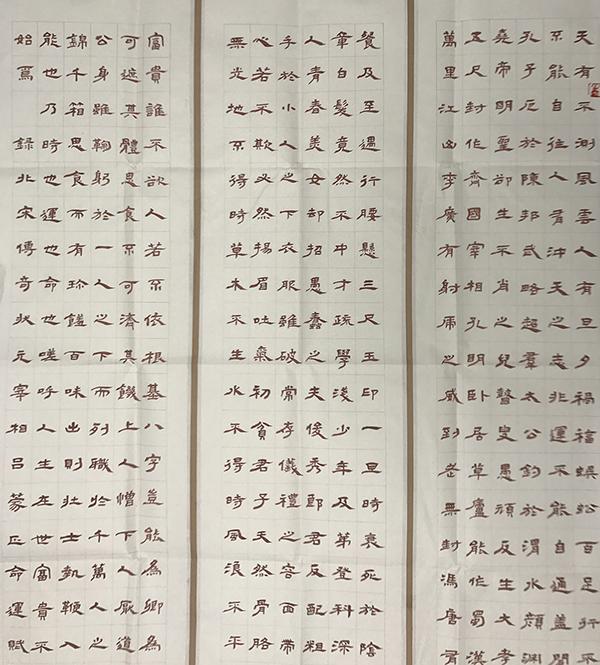 天有不測風雲人有旦夕禍福蜈蚣百足行不
不能自往人有沖天之志非運不能自通蓋聞
孔子厄於陳邦武略超羣太公釣於渭水顏淵
堯帝明聖卻生不肖之兒瞽叟愚頑反生大孝
五尺封作齊國宰相孔明臥居草廬能作蜀漢
萬里江山李廣有射虎之威到老無封馮唐有
餐及至遇行腰懸三尺玉印一旦時衰死於陰
章白髮竟然不中才疏學淺少年及第登科深
人青春美女却招愚蠢之夫俊秀郎君反配粗
手於小人之下衣服雖破常存儀禮之容面帶
心若不欺必然揚眉吐氣初貧君子天然骨骼
無光地不得時草木不生水不得時風浪不平
富貴誰不欲人若不依根基八字豈能為卿為
可遮其體思食不可濟其饑上人憎下人厭道
公身雖鞠躬於一人之下而列職於千萬人之
錦千箱思食而有珍饈百味出則壯士執鞭入
能也乃時也運也命也嗟呼人生在世富貴不
始焉 錄北宋傳奇狀元宰相呂蒙正命運賦